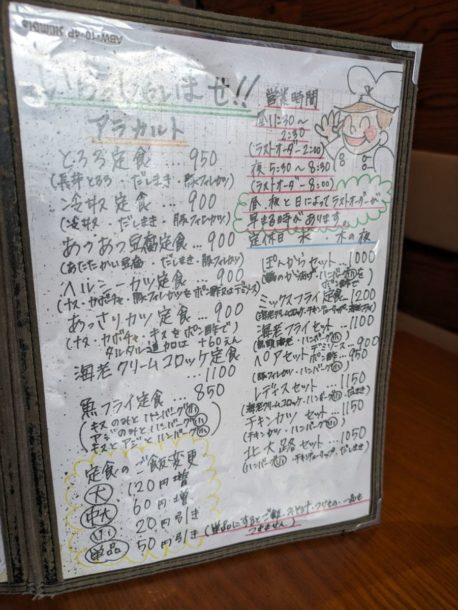 いらっしゃいませ!!
アラカルト
とろろ定食 … 950
(長芋とろろ・だしまき・豚フィレカツ)
冷奴定食 … 900
(冷奴・だしまき・豚フィレカツ)
あつあつ豆腐定食 … 900
(あたたかい豆腐・だしまき・豚フィレカツ)
ヘルシーカツ定食 … 900
(ナス・カボチャ・豚フィレカツをポン酢又はデミソース)
あっさりカツ定食 … 900
(ナス・カボチャ・キスをポン酢で)
タルタル追加ロ +60えん
海老クリームコロッケ定食
… 1100
魚フライ定食 … 850
(キスのみとハンバーグ小)
(アジのみとハンバーグ小)
(キスとアジとハンバーグ小)
定食のご飯変更
大 120円増
中大 60円増
小 20円引き
単品 50円引き
(単品にすると
つきません)
営業時間
昼11:30〜
2:30
(ラストオーダー2:00)
夜5:30〜8:30
(ラストオーダー8:00)
昼、夜と日によってラストオーダーが
早まる時があります。
定休日 水 木の夜
ぽんからセット … 1000
ミックスフライ定食 … 1200
海老フライセット … 1100
(有頭海老・ハンバーグ小)
ヘレアセット デミソース … 900
ポン酢 … 950
(豚フィレカツ・ハンバーグ小)
レディスセット … 1150
(海老クリームコロッケ・ハンバーグ小・だしまき)
チキンカツセット … 1150
(チキンカツ・ハンバーグ小)
北大路セット … 1050
ABW-10-4P